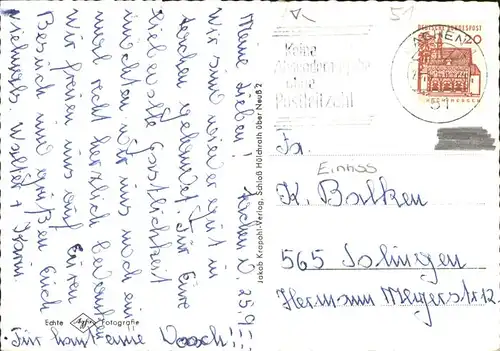 Aachen, 25.9.
Meine Lieben!
Wir sind wieder gut in
Aachen gelandet. Für Eure
liebevolle Gastlichkeit
möchten wir uns noch ein-
mal recht herzlich bedanken.
Wir freuen uns auf Euren
Besuch und grüßen Euch
vielmals Walter + Karin.
Für heut eine
Echte Agfa Fotografie
Jakob Krapohl-Verlag, Schloß Hülchrath über Neuß 2
51
Keine
ohne
Postleitzahl
AACHEN
51
DEUTSCHE BUNDESPOST
20
Fa.
K. Balken
565 Solingen
Hermann Meyerstr. 12